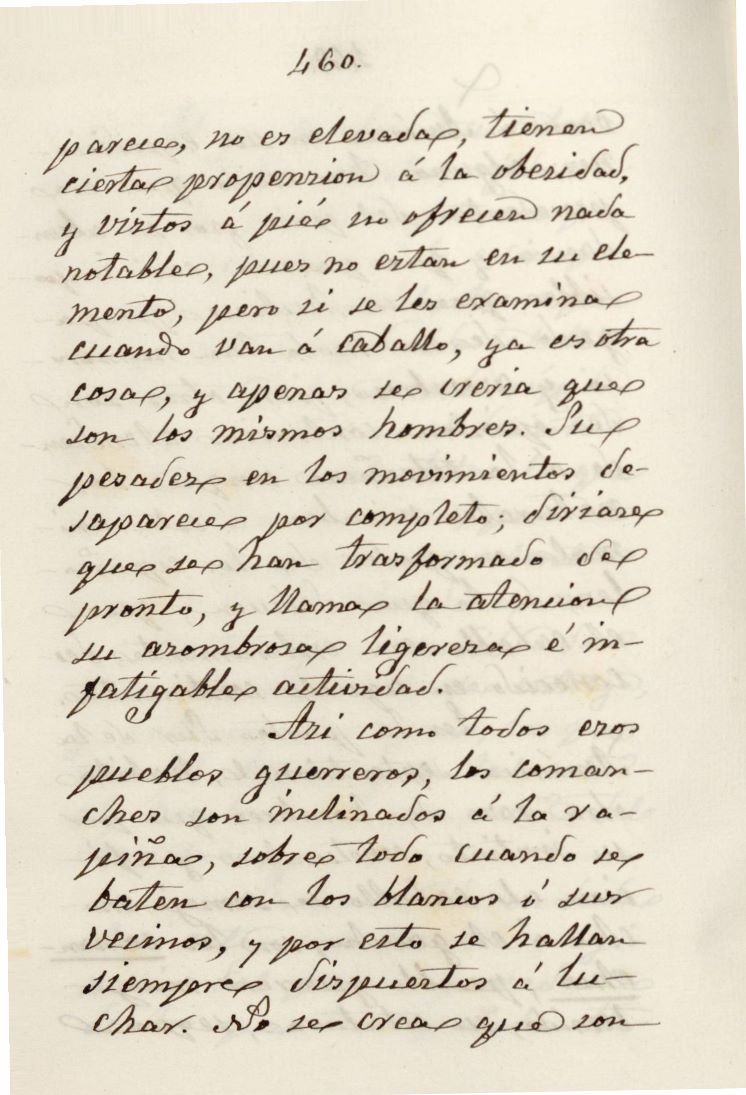 460.
parece, no es elevada, tienen
cierta propension á la obesidad,
y vistos á pié no ofrecen nada
notable, pues no estan en su ele-
mento, pero si se les examina
cuando van á caballo, ya es otra
cosa, y apenas se creria que
son los mismos hombres. Su
pesadez en los movimientos de-
saparece por completo; diriase
que se han trasformado de
pronto, y llama la atencion
su asombrosa ligereza é in-
fatigable actividad.
Asi como todos esos
pueblos guerreros, los coman-
ches son inclinados á la ra-
piña, sobre todo cuando se
baten con los blancos ó sus
vecinos, y por esto se hallan
siempre dispuestos á lu-
char. No se crea que son